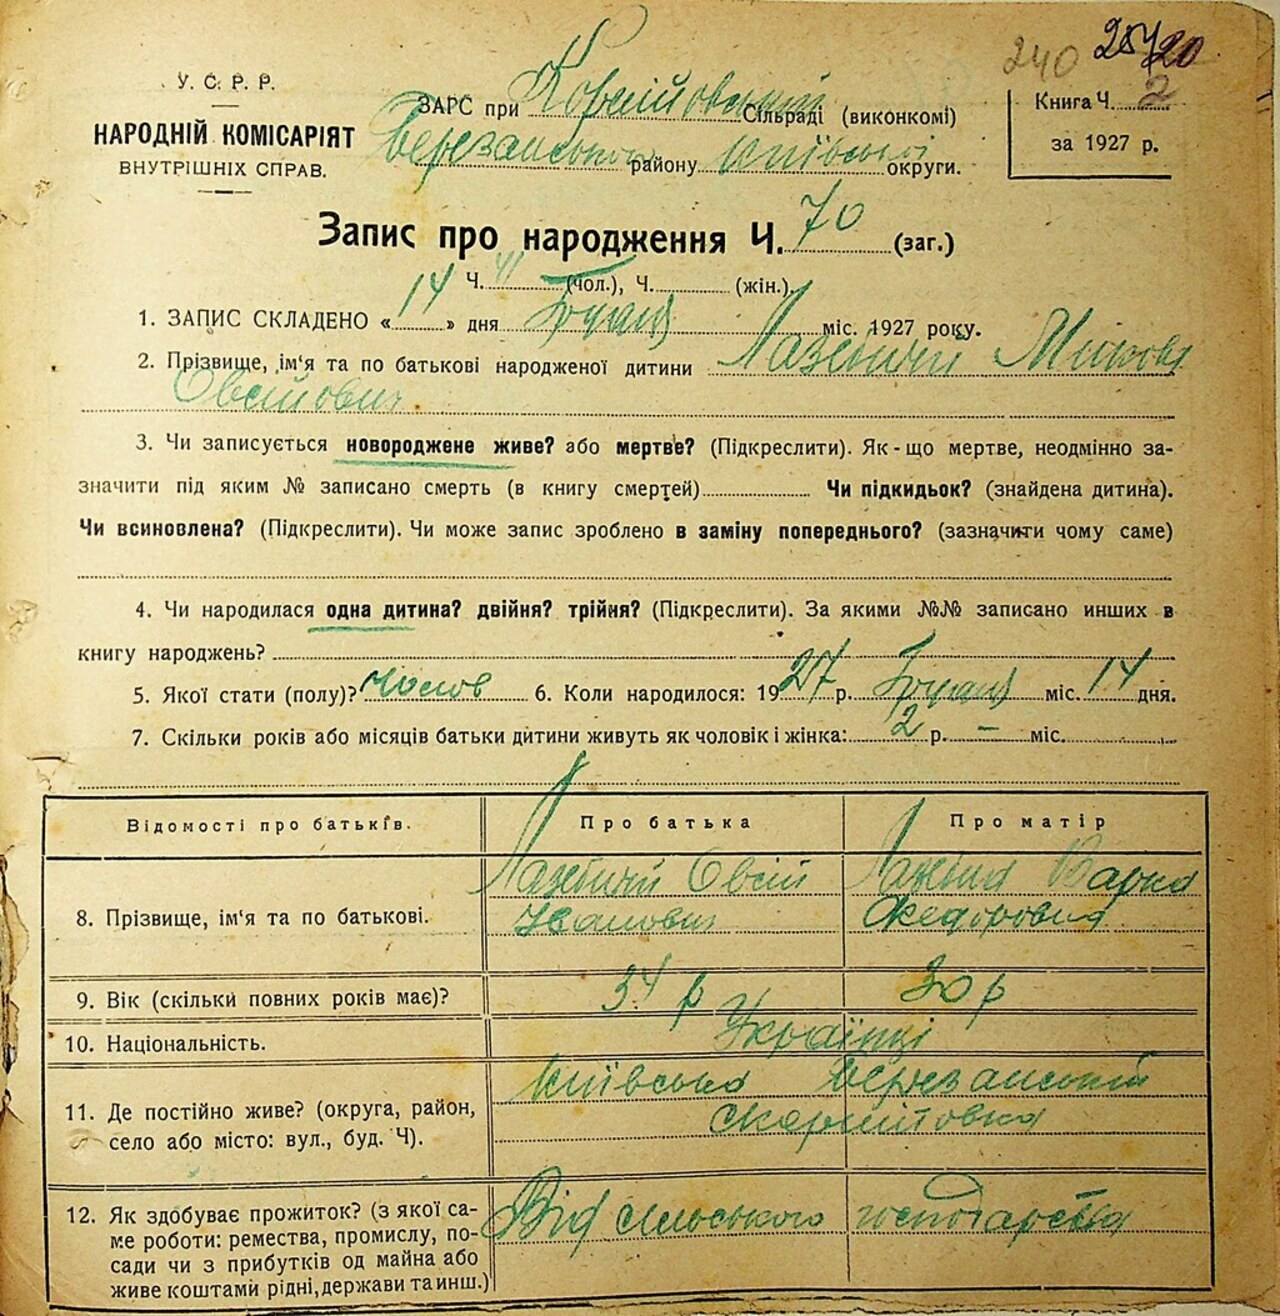 240 254 20
У. С. Р. Р.
НАРОДНІЙ КОМІСАРІЯТ
ВНУТРІШНІХ СПРАВ.
ЗАРС при Сільраді (виконкомі)
Березанського району Київської округи.
Книга Ч. 2
за 1927 р.
Запис про народження Ч. 70 (заг.)
Ч. 41 (чол.), Ч. (жін.).
1. ЗАПИС СКЛАДЕНО «14» дня Грудня міс. 1927 року.
2. Прізвище, ім'я та по батькові народженої дитини Лазебний Микола
Овсійович
3. Чи записується новороджене живе? або мертве? (Підкреслити). Як-що мертве, неодмінно за-
значити під яким № записано смерть (в книгу смертей) Чи підкидьок? (знайдена дитина).
Чи всиновлена? (Підкреслити). Чи може запис зроблено в заміну попереднього? (зазначити чому саме)
4. Чи народилася одна дитина? двійня? трійня? (Підкреслити). За якими №№ записано инших в
книгу народжень?
5. Якої стати (полу)? чолов 6. Коли народилося: 1927 р. Грудня міс. 14 дня.
7. Скільки років або місяців батьки дитини живуть як чоловік і жінка: 2 р. — міс.
Відомості про батьків. Про батька Про матір
8. Прізвище, ім'я та по батькові. Лазебний Овсій Лазебна Варка
Іванович Федоровна
9. Вік (скільки повних років має)? 34 р 30 р
10. Національність. Українці
11. Де постійно живе? (округа, район, Київська Березанський
село або місто: вул., буд. Ч).
12. Як здобуває прожиток? (з якої са- Від сільського господарства
ме роботи: ремества, промислу, по-
сади чи з прибутків од майна або
живе коштами рідні, держави та инш.)